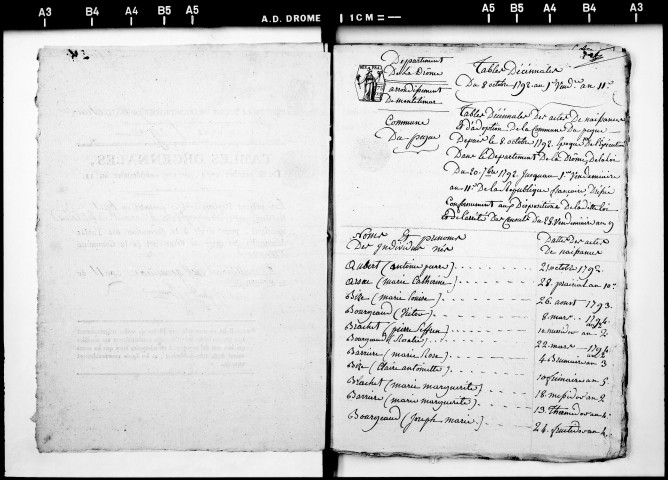 A3 B4 A4 B5 A5 A.D. DROME 1 CM = A5 B5 A4 B4 A3
Departement
De La Drôme
arrondissement
de montelimar
Commune
Du pegue
Tables Décennales
Du 8 octobre 1792. au 1er Vend.re an 11e
Tables Décennales des actes de naissance
et d'adoption de la Commune du pegue
Depuis le 8 octobre 1792. époque de l'exécution
Dans le Departement de la Drôme, de la loi
Du 20. 7bre 1792. jusqu'au 1er Vendemiaire
an 11e de la Republique françoise,
Conformement aux Dispositions de la ditte loi
et de l'arrêté des Consuls du 25 Vendemiaire an 9
Noms et prenoms
Des individus nés
Dattes des actes
de naissance
Aubert (antoine pierre) 21 octobre 1792.
(marie Catherine) 28. prairial an 10e
Bize (marie louise) 26. aoust 1793.
Bourgeaud (Victor) 8. mars 1794
Brachet (pierre ) 10 messidor an 2
Bourgeaud 22 mars 1794
Barrure (marie Rose) 4 Brumaire an 3
Bize (Claire antoinette) 10 frimaire an 5
Brachet (marie marguerite) 18. messidor an 2
Barrure (marie marguerite) 13. Thermidor an 4.
Bourgeaud (Joseph marie) 24. fructidor an 4.